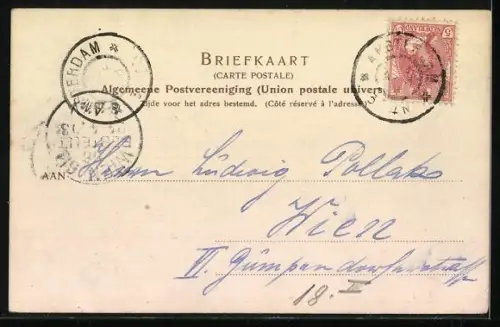 BRIEFKAART
(CARTE POSTALE)
Algemeene Postvereeniging (Union postale univers
Zijde voor het adres bestemd. (Côté réservé à l'adresse
AMSTERDAM
AMSTER
AAN
Herrn Ludwig Pollak
Wien
VI. Gumpendorferstraße
18.